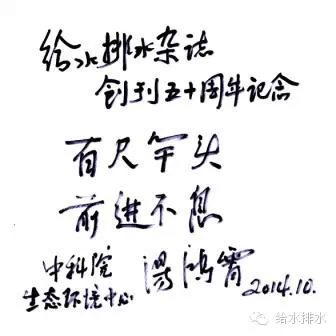 给水排水杂誌
创刊五十周年记念
百尺竿头
前进不息
中科院
生态环境中心
汤鸿霄
2014.10.
给水排水